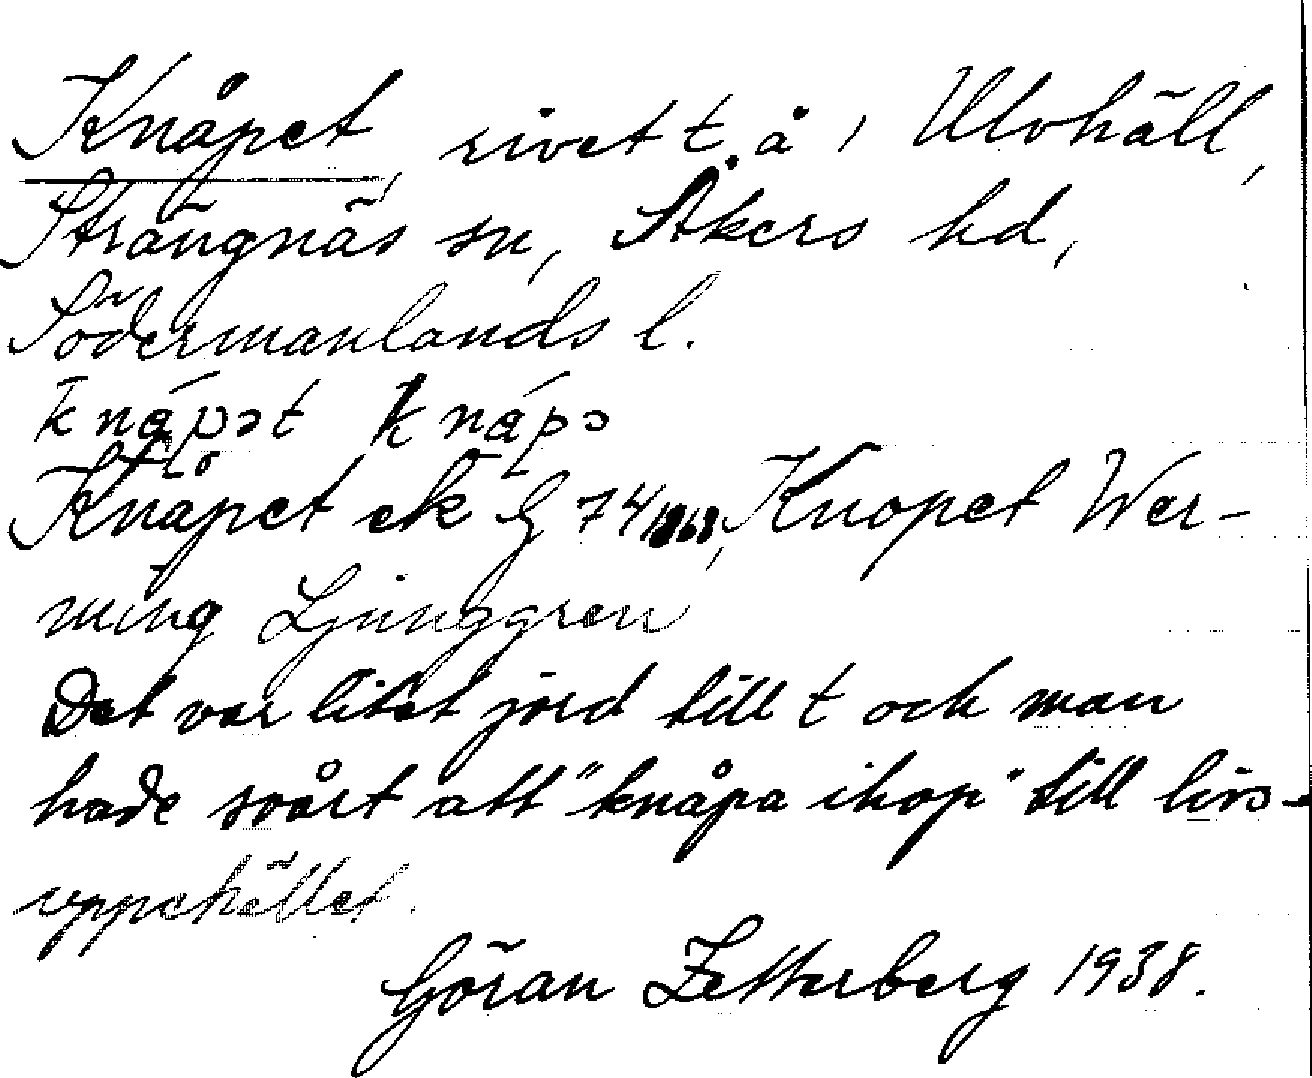 Knåpet, rivet t. å, Ulvhäll,
Strängnäs sn, Åkers hd,
Södermanlands l.
knápət knápə
Knåpet ek G 74 1868, Knopet Wer-
ming Ljunggren
Det var litet jord till t och man
hade svårt att "knåpa ihop" till livs-
uppehället.
Göran Zetterberg 1938.